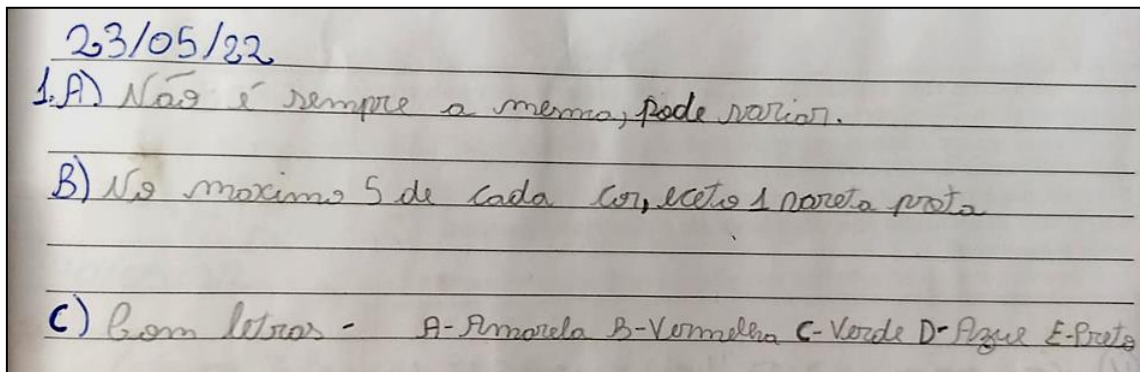 23/05/22
1.A) Não é sempre a mesma, pode variar.
B) No maximo 5 de cada cor, eceto 1 vareta preta
C) Com letras - A-Amarela B-Vermelha C-Verde D-Azul E-Preto